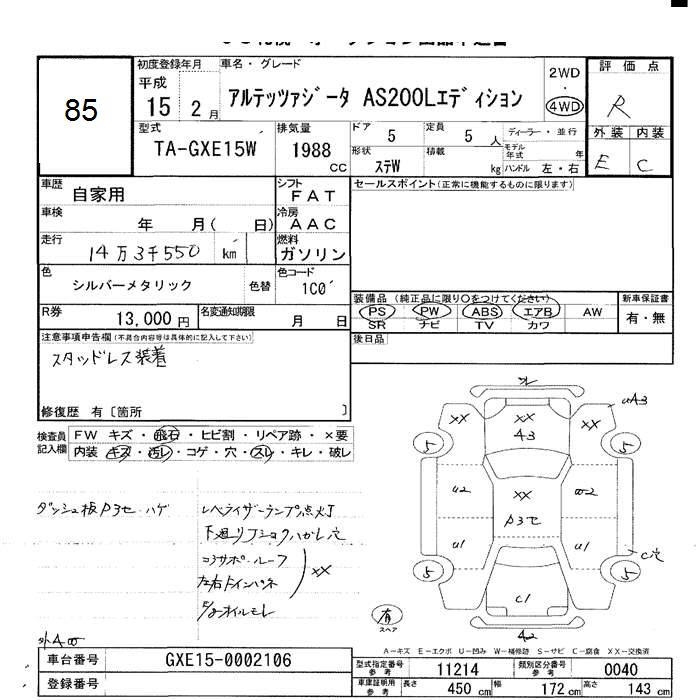 85
初度登録年月
平成
15 2 月
車名・グレード
アルテッツァジータ AS200Lエディション
2WD
・
4WD
評価点
R
外装 内装
E C
型式
TA-GXE15W
排気量
1988
CC
ドア 5
定員 5 人
ディーラー・並行
形状 ステW
積載 kg
モデル年式 年
ハンドル 左・右
車歴 自家用
シフト FAT
セールスポイント(正常に機能するものに限ります)
車検 年 月( 日)
冷房 AAC
走行 14万3千550 km
燃料 ガソリン
色 シルバーメタリック 色替
色コード 1C0
装備品 (純正品に限り○をつけてください)
新車保証書
PS PW ABS エアB AW
有・無
SR ナビ TV カワ
R券 13,000円
名変通知期限 月 日
後日品
注意事項申告欄(不具合内容等は具体的に記入して下さい)
スタッドレス装着
修復歴 有〔箇所 〕
検査員記入欄
FW キズ・飛石・ヒビ割・リペア跡・×要
内装 キズ・汚レ・コゲ・穴・スレ・キレ・破レ
ダッシュ板
レベライザーランプ点灯
コアサポ・ルーフ
左右
XX
オイルモレ
XX
XX
XX
A3
5
5
U2
XX
U1
U1
5
5
C1
有
スペア
A2
A-キズ E-エクボ U-凹み W-補修跡 S-サビ C-腐食 XX-交換済
車台番号 GXE15-0002106
型式指定番号 参考 11214
類別区分番号 参考 0040
登録番号
車庫証明用 参考
長さ 450 cm
幅 172 cm
高さ 143 cm